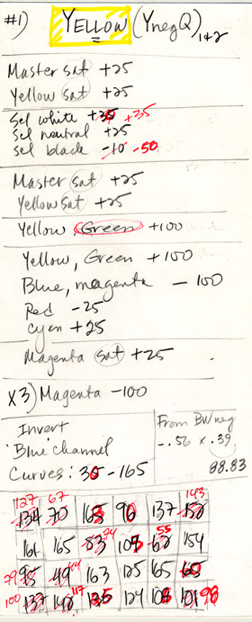 #1) YELLOW (YnegQ) 1+2
Master sat +25
Yellow sat +25
Sel white +35 +35
Sel neutral +25
Sel black -10 -50
Master sat +25
Yellow sat +25
Yellow Green +100
Yellow, Green +100
Blue, magenta - 100
Red - 25
Cyan +25
Magenta sat +25
X3) Magenta -100
Invert
"Blue" channel
Curves: 35 - 165
From BW neg
-.56 x .39
88.83
127 67 143
134 70 165 90 137 152
74 55
161 165 83 108 62 154
79 95 49 163 125 165 60
100 137 142 117 124 108 101 98